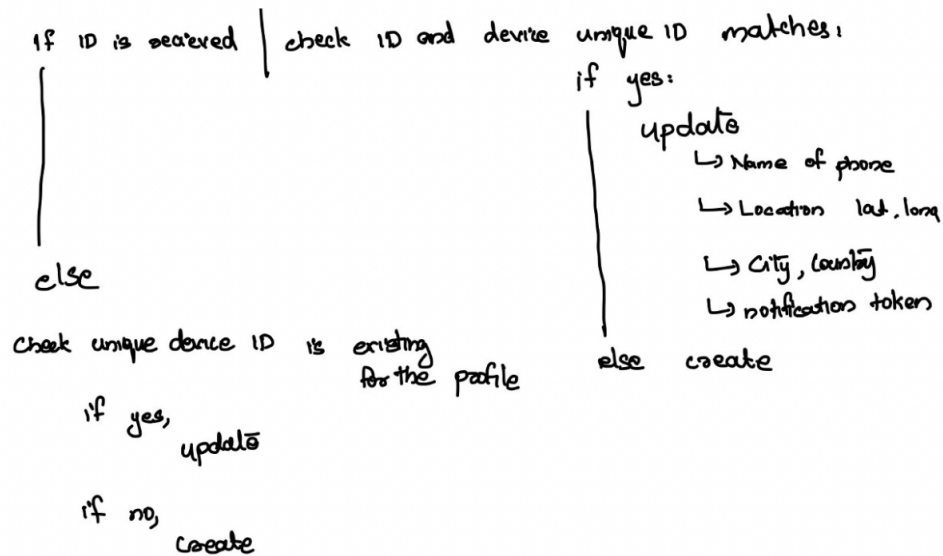 If ID is recieved | check ID and device unique ID matches:
if yes:
update
↳ Name of phone
↳ Location lat, long
↳ City, Country
↳ notification token
else create
else
check unique device ID is existing
for the profile
if yes,
update
if no,
create